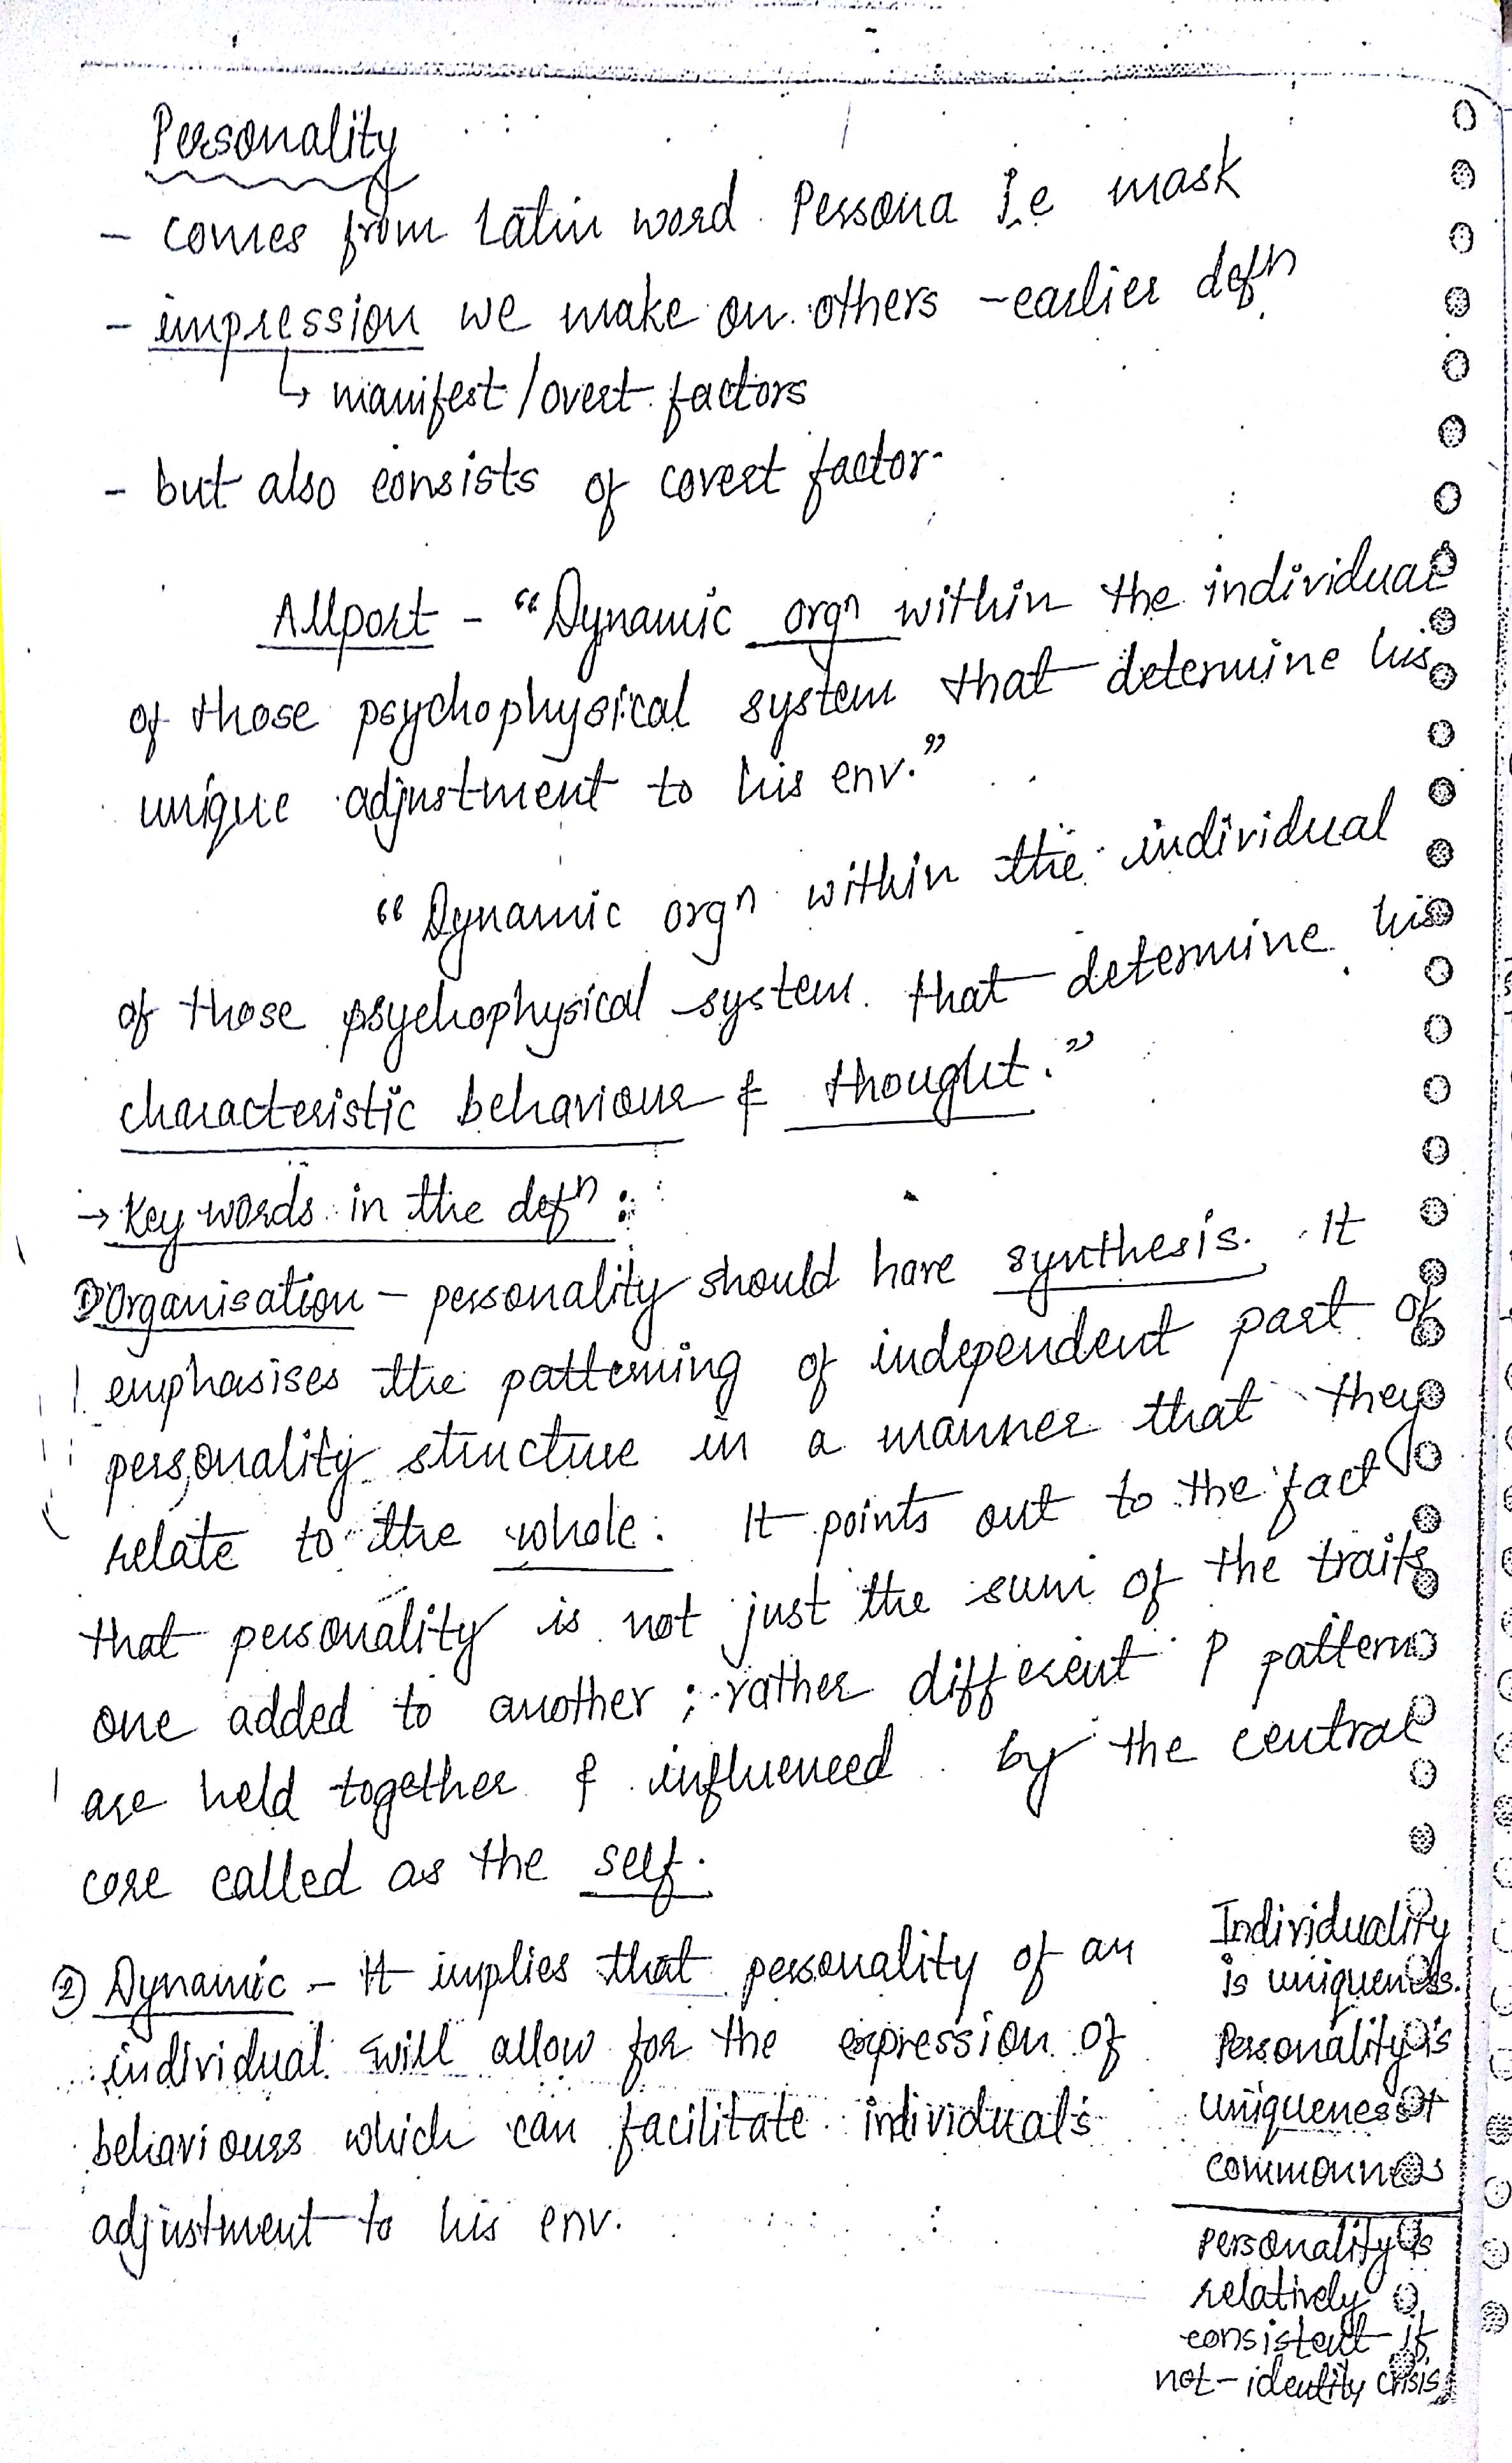 Personality
- comes from Latin word Persona I.e mask
- impression we make on others - earlier defn
↳ manifest/overt factors
- but also consists of covert factor.
Allport - "Dynamic orgn within the individual
of those psychophysical system that determine his
unique adjustment to his env."
"Dynamic orgn within the individual
of those psychophysical system that determine his
characteristic behaviour & thought."
→ Key words in the defn :
① Organisation - personality should have synthesis. It
emphasises the patterning of independent part of
personality structure in a manner that they
relate to the whole. It points out to the fact
that personality is not just the sum of the traits
one added to another ; rather different P patterns
are held together & influenced by the central
core called as the self.
② Dynamic - It implies that personality of an
individual will allow for the expression of
behaviours which can facilitate individual's
adjustment to his env.
Individuality
is uniqueness.
Personality is
uniqueness +
commonness
Personality is
relatively
consistent if
not - identity crisis